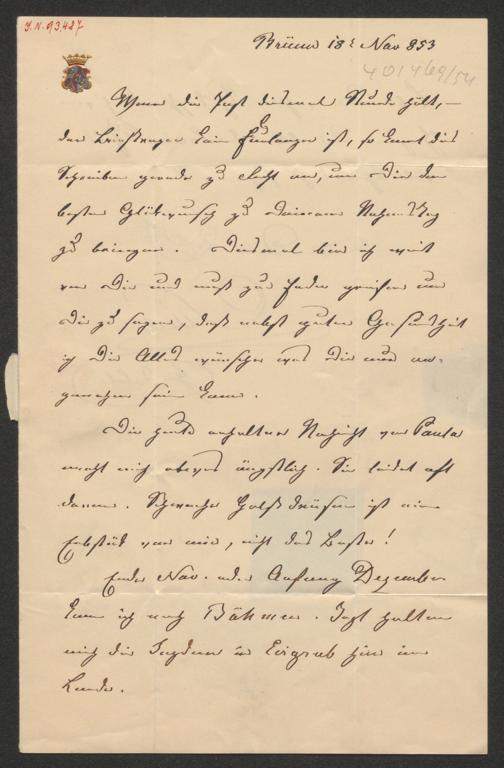 J.N. 93.487
Brünn 18t Nov 853
401469/54
Wenn die Post diesmal Stunde hält, —
der Briefträger kein Faulenzer ist, so kommt dies
Schreiben gerade zu recht an, um Dir den
besten Glückwunsch zu Deinem Namenstag
zu bringen. Diesmal bin ich weit
von Dir und muß zur Feder greifen um
Dir zu sagen, daß nebst guter Gesundheit
ich Dir Alles wünsche was Dir nur an-
genehm sein kann.
Die heute erhaltene Nachricht von Paula
macht mich etwas ängstlich. Sie leidet oft
daran. Schwache Halsdrüsen ist ein
Erbstück von mir, nicht das Beste!
Ende Nov. oder Anfang Dezember
komm ich nach Böhmen. Jezt halten
mich die Jagden in Eisgrub hier im
Lande.